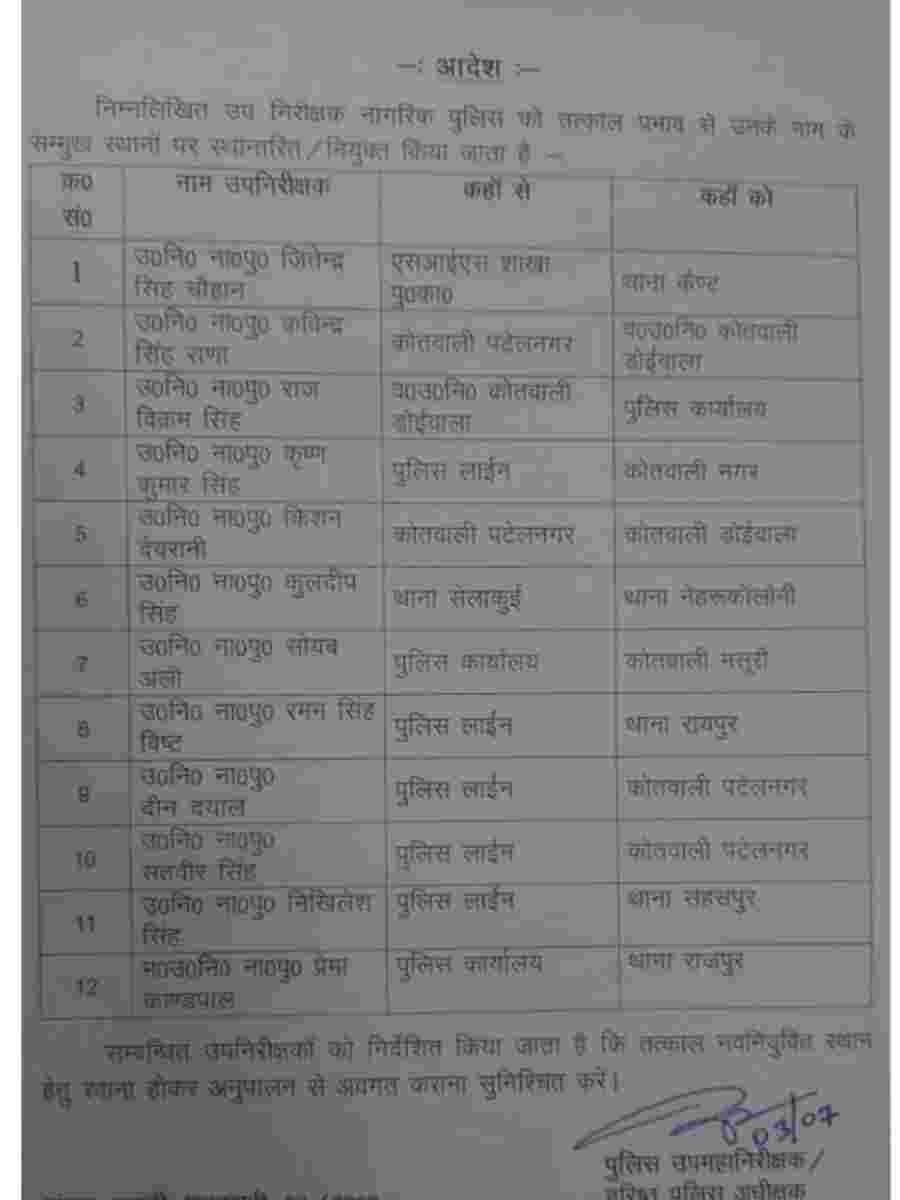 -: आदेश :-
निम्नलिखित उप निरीक्षक नागरिक पुलिस को तत्काल प्रभाव से उनके नाम के
सम्मुख स्थानों पर स्थानारित/नियुक्त किया जाता है –
क0 सं0 नाम उपनिरीक्षक कहाँ से कहाँ को
1 उ0नि0 ना0पु0 जितेन्द्र सिंह चौहान एसआईएस शाखा पु0का0 थाना कैण्ट
2 उ0नि0 ना0पु0 कविन्द्र सिंह राणा कोतवाली पटेलनगर व0उ0नि0 कोतवाली डोईवाला
3 उ0नि0 ना0पु0 राज विक्रम सिंह व0उ0नि0 कोतवाली डोईवाला पुलिस कार्यालय
4 उ0नि0 ना0पु0 कृष्ण कुमार सिंह पुलिस लाईन कोतवाली नगर
5 उ0नि0 ना0पु0 किशन देवरानी कोतवाली पटेलनगर कोतवाली डोईवाला
6 उ0नि0 ना0पु0 कुलदीप सिंह थाना सेलाकुई थाना नेहरूकॉलोनी
7 उ0नि0 ना0पु0 सोयब अली पुलिस कार्यालय कोतवाली मसूरी
8 उ0नि0 ना0पु0 रमन सिंह विष्ट पुलिस लाईन थाना रायपुर
9 उ0नि0 ना0पु0 दीन दयाल पुलिस लाईन कोतवाली पटेलनगर
10 उ0नि0 ना0पु0 सतवीर सिंह पुलिस लाईन कोतवाली पटेलनगर
11 उ0नि0 ना0पु0 निखिलेश सिंह पुलिस लाईन थाना सहसपुर
12 म0उ0नि0 ना0पु0 प्रेमा काण्डपाल पुलिस कार्यालय थाना राजपुर
सम्बन्धित उपनिरीक्षकों को निर्देशित किया जाता है कि तत्काल नवनियुक्ति स्थान
हेतु रवाना होकर अनुपालन से अवगत कराना सुनिश्चित करें।
03/07
पुलिस उपमहानिरीक्षक/
वरिष्ठ पुलिस अधीक्षक